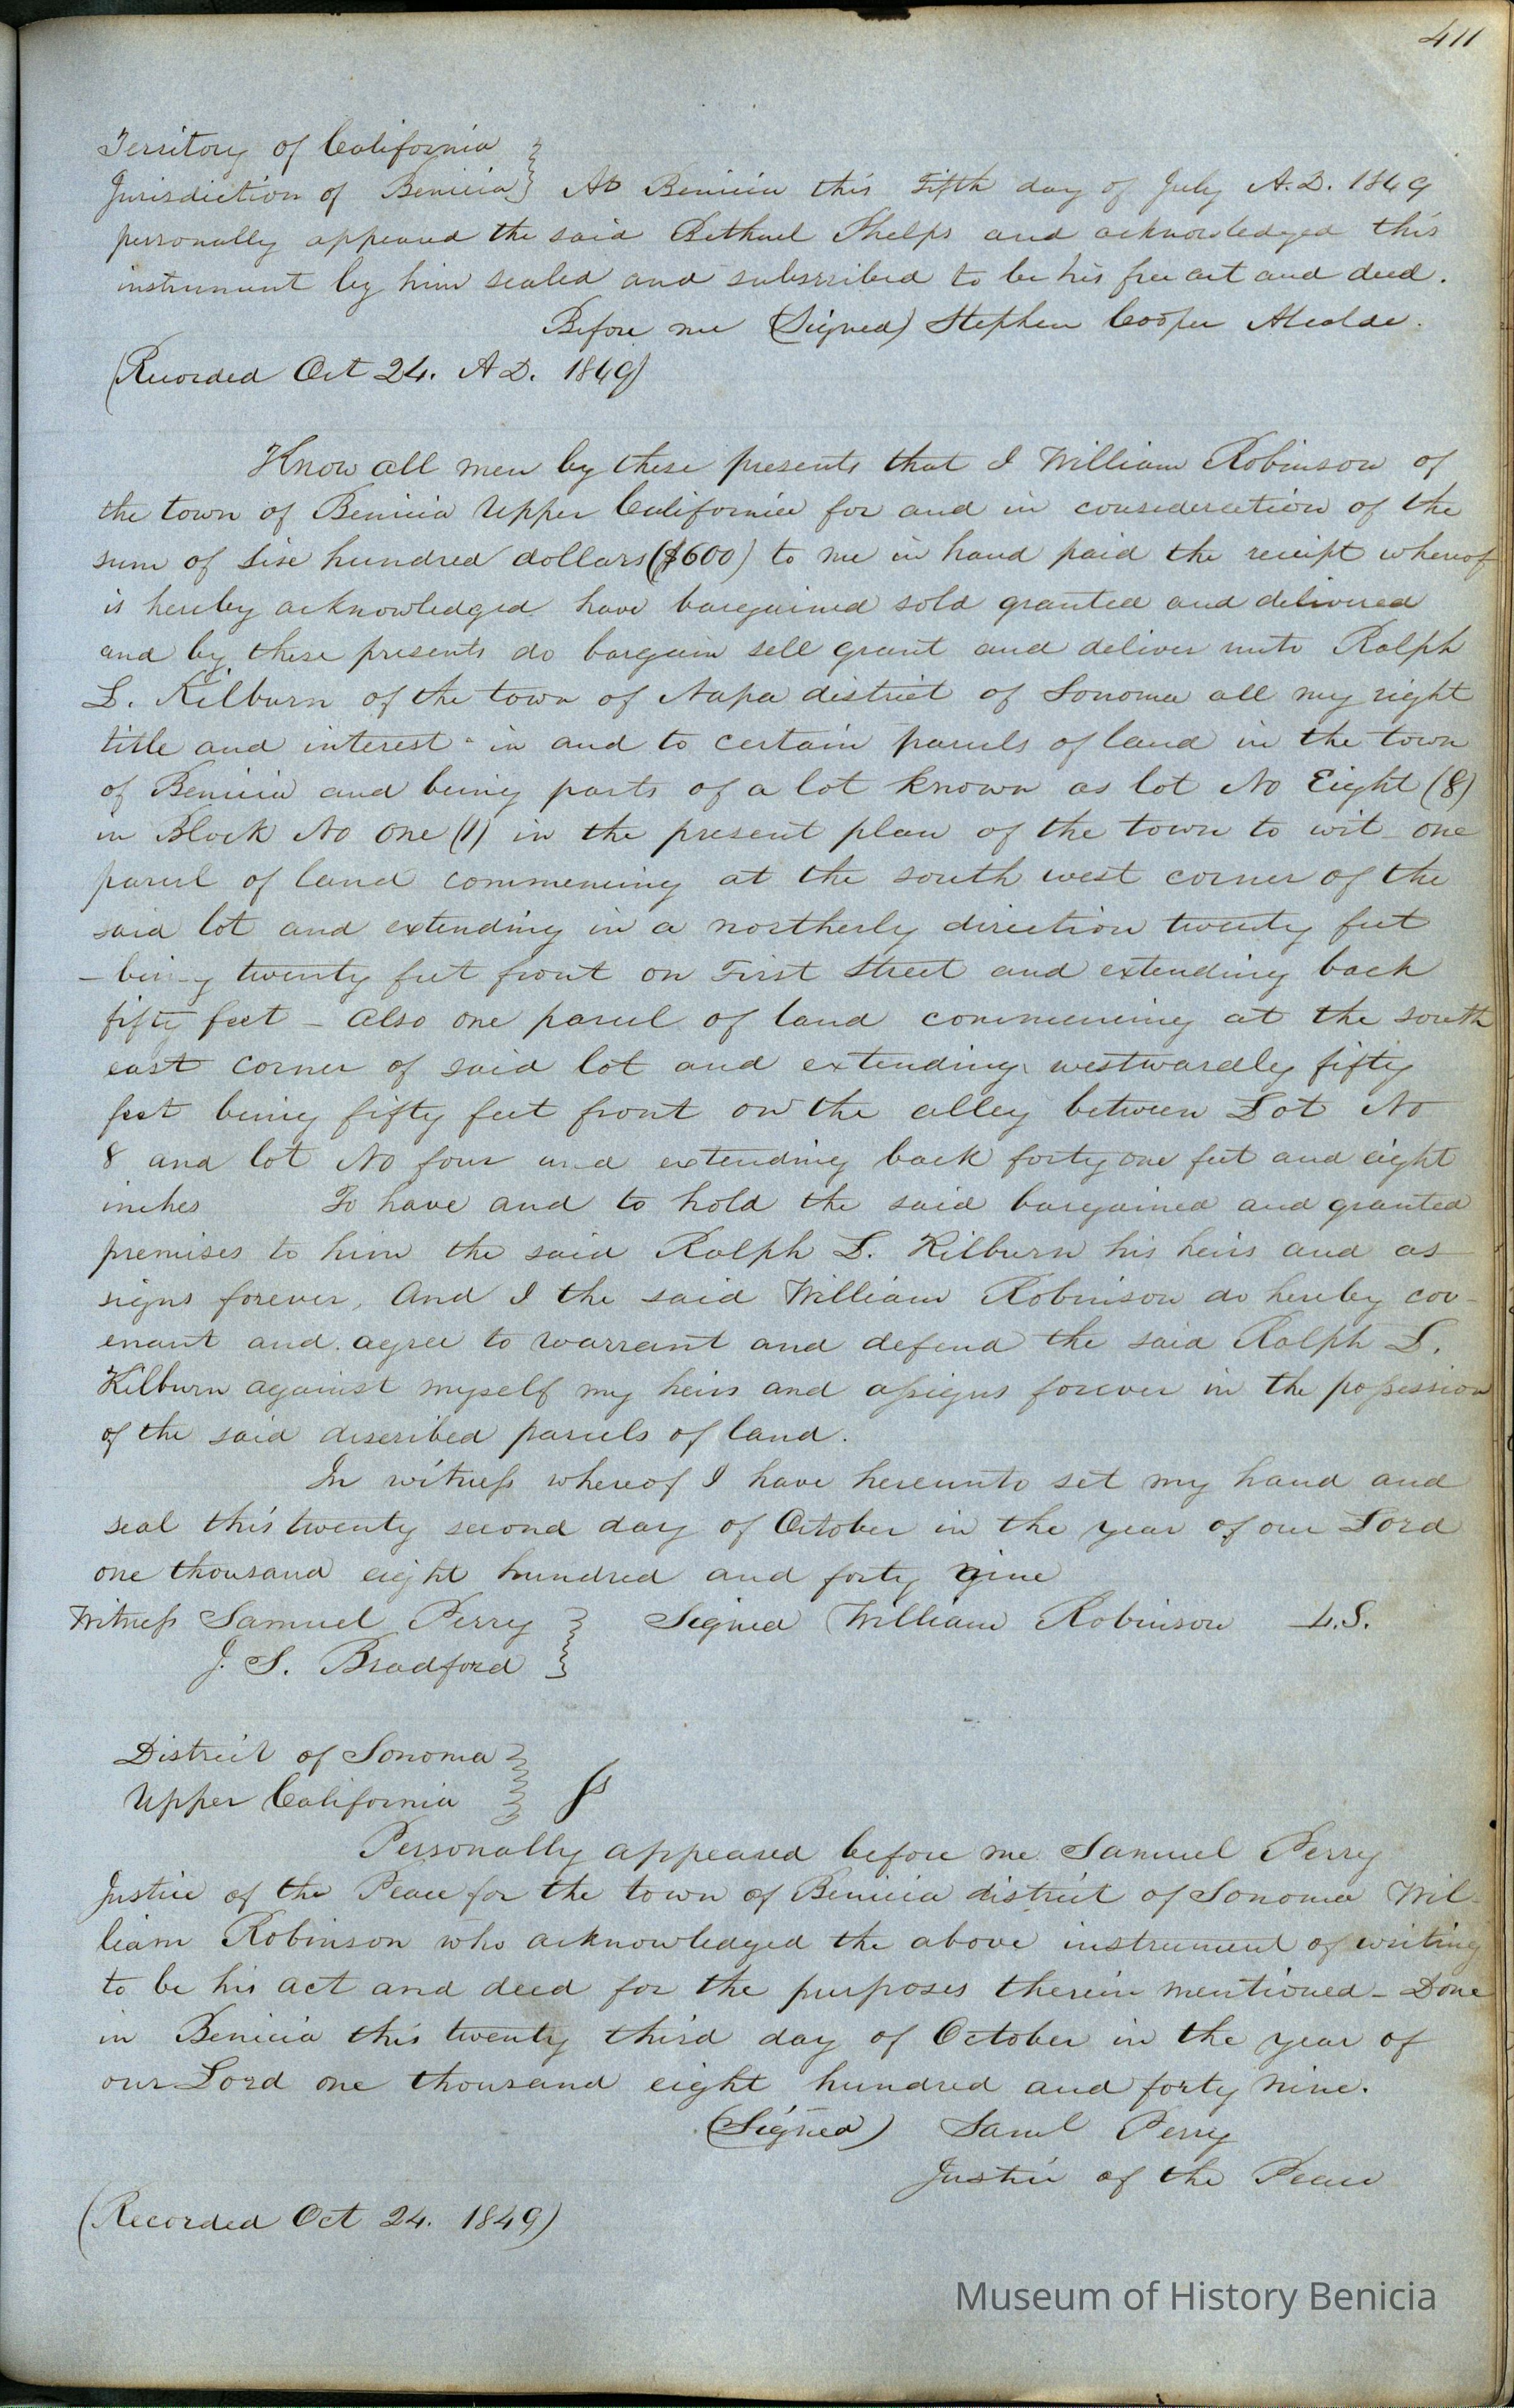 411
Territory of California
Jurisdiction of Benicia } At Benicia this Fifth day of July A.D. 1849
personally appeared the said Bethuel Phelps and acknowledged this
instrument by him sealed and subscribed to be his free act and deed.
Before me (Signed) Stephen Cooper Alcalde.
(Recorded Oct 24. A D. 1849)
Know all men by these presents that I William Robinson of
the town of Benicia Upper California for and in consideration of the
sum of six hundred dollars ($600) to me in hand paid the receipt whereof
is hereby acknowledged have bargained sold granted and delivered
and by these presents do bargain sell grant and deliver unto Ralph
L. Kilburn of the town of Napa district of Sonoma all my right
title and interest - in and to certain parcels of land in the town
of Benicia and being parts of a lot known as lot No Eight (8)
in Block No One (1) in the present plan of the town to wit - one
parcel of land commencing at the south west corner of the
said lot and extending in a northerly direction twenty feet
- being twenty feet front on First Street and extending back
fifty feet - also one parcel of land commencing at the south
east corner of said lot and extending westwardly fifty
feet being fifty feet front on the alley between Lot No
8 and lot No four and extending back forty one feet and eight
inches To have and to hold the said bargained and granted
premises to him the said Ralph L. Kilburn his heirs and as
signs forever, And I the said William Robinson do hereby cov-
enant and agree to warrant and defend the said Ralph L.
Kilburn against myself my heirs and assigns forever in the possession
of the said described parcels of land.
In witness whereof I have hereunto set my hand and
seal this twenty second day of October in the year of our Lord
one thousand eight hundred and forty nine
Witness Samuel Perry } Signed William Robinson L.S.
J. S. Bradford
District of Sonoma
Upper California } ss
Personally appeared before me Samuel Perry
Justice of the Peace for the town of Benicia district of Sonoma Wil-
liam Robinson who acknowledged the above instrument of writing
to be his act and deed for the purposes therein mentioned - Done
in Benicia this twenty third day of October in the year of
our Lord one thousand eight hundred and forty nine.
(Signed) Saml Perry
Justice of the Peace
(Recorded Oct 24. 1849)
Museum of History Benicia